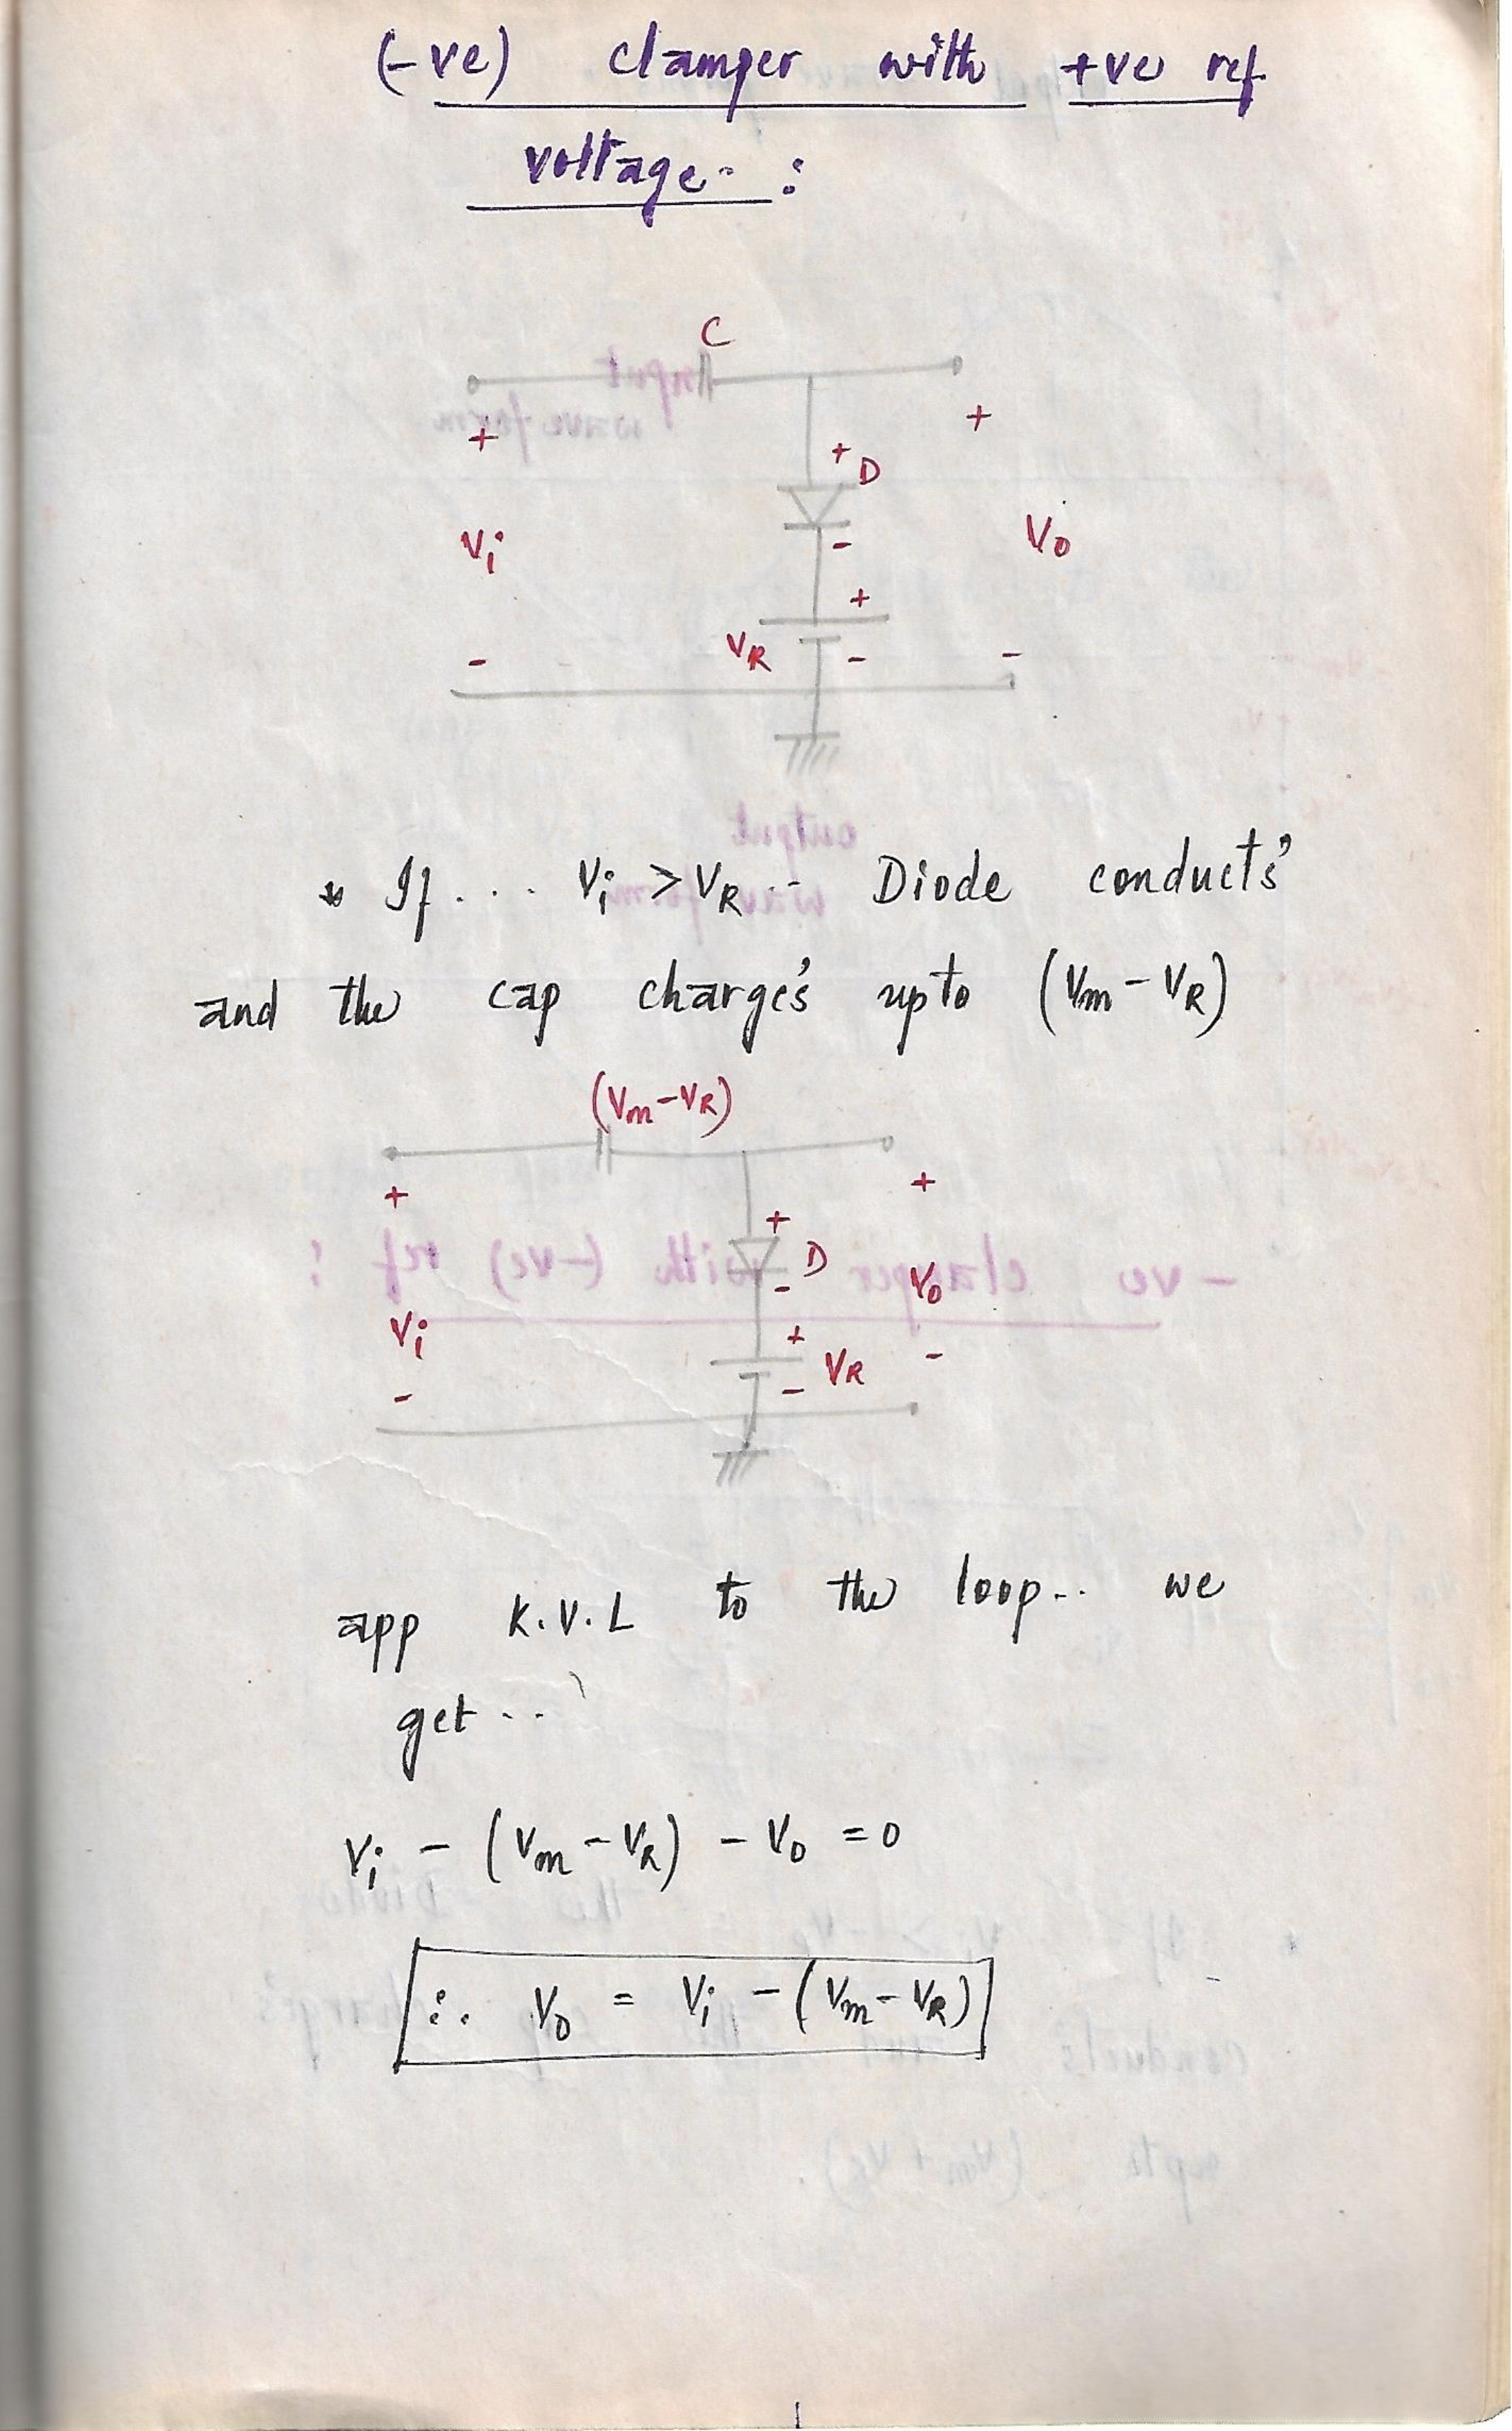 (-ve) clamper with +ve ref
voltage.. :
C
+ +
+ D
Vi - Vo
+
- VR - -
* If .... Vi > VR .. Diode conduct's
and the cap charge's upto (Vm - VR)
(Vm - VR)
+ +
+ D
- Vo
Vi + VR -
- -
app K.V.L to the loop.. we
get ..
Vi - (Vm - VR) - Vo = 0
∴ Vo = Vi - (Vm - VR)